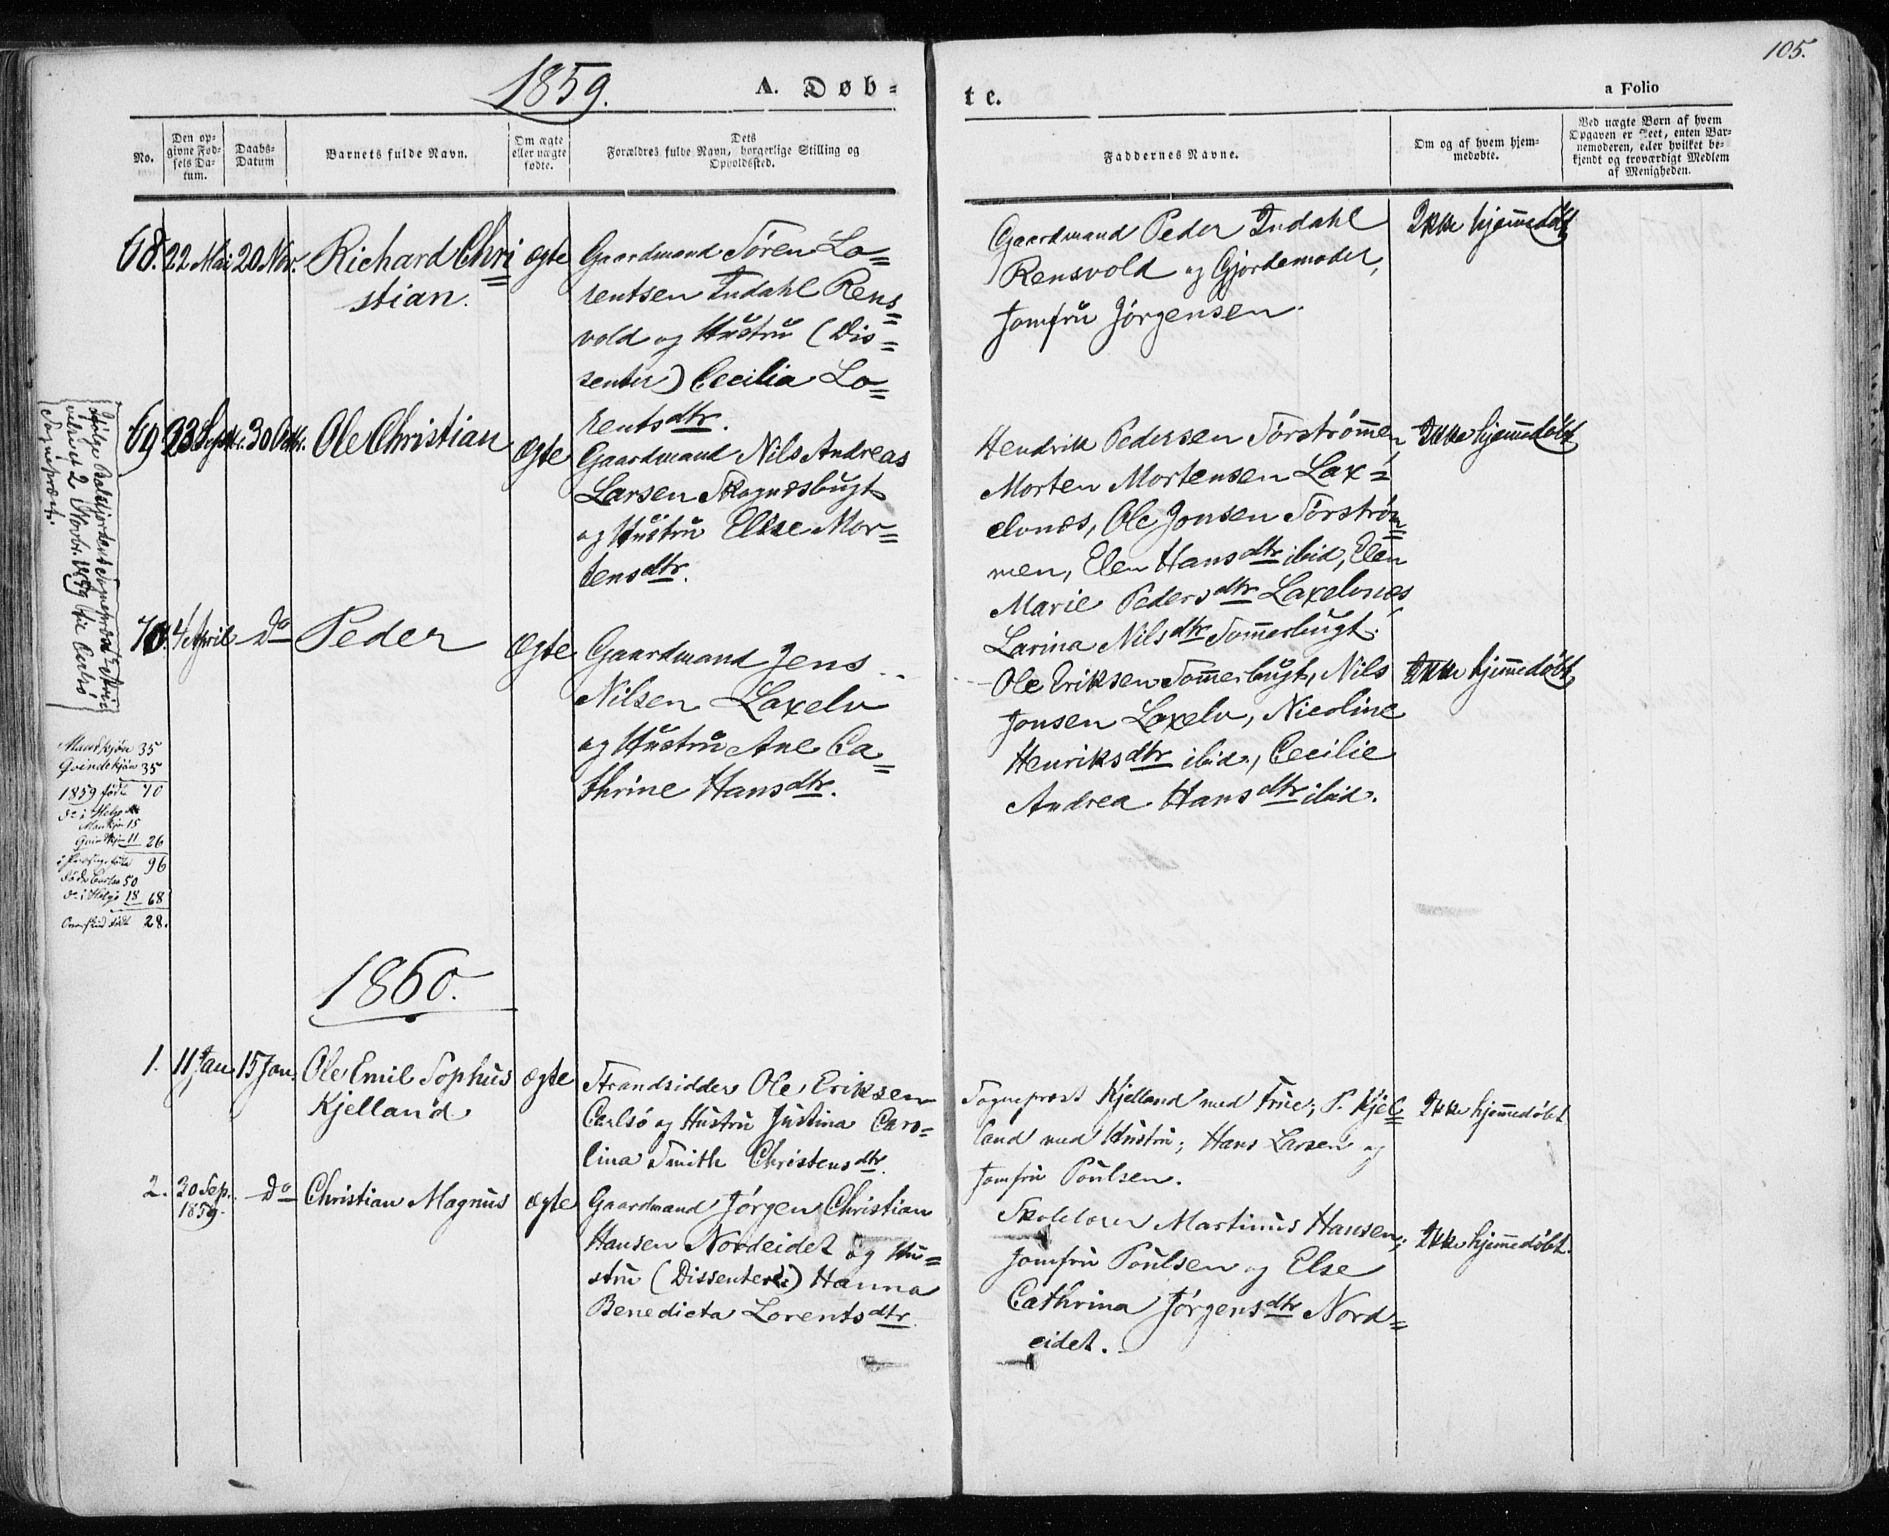 105.
1859.
A. Døb=
te.
a Folio
No.
Den op-
givne Fød-
sels Da-
tum.
Daabs-
Datum
Barnets fulde Navn.
Om ægte
eller uægte
fødte.
Dets
Forældres fulde Navn, borgerlige Stilling og
Opholdssted.
Faddernes Navne.
Om og af hvem hjem-
medøbte.
Ved uægte Børn af hvem
Opgaven er skeet, enten Bar-
nemoderen, eller hvilket be-
kjendt og troværdigt Medlem
af Menigheden.
68. 22 Mai 20 Nov. Richard Chri=
stian.
Ægte
Gaardmand Søren Lo=
rentsen Indahl Rens=
vold og Hustru (Dis=
senter) Cecilia Lo=
rentsdtr.
Gaardmand Peder Indahl
Rensvold og Gjordemoder,
Jomfru Jørgensen.
Ikke hjemmedøbt
69 23 Septbr. 30 Octbr. Ole Christian
Ægte
Gaardmand Nils Andreas
Larsen Skognæsbugt
og Hustru Elise Mor=
tensdtr.
Hendrik Pedersen Torstrømmen,
Morten Mortensen Lax=
elvnæs, Ole Jonsen Torstrøm=
men, Elen Hansdtr ibid, Elen
Marie Pedersdtr Laxelvnæs,
Larina Nilsdtr Sommerbugt.
Ikke hjemmedøbt
70. 4 April Do Peder
Ægte
Gaardmand Jens
Nilsen Laxelv
og Hustru Ane Ca=
thrine Hansdtr.
Ole Eriksen Sommerbugt, Nils
Jonsen Laxelv, Nicoline
Henriksdtr ibid., Cecilie
Andrea Hansdtr ibid.
Ikke hjemmedøbt
Ifølge Balsfjordens Sognepræst
2 Novbr. 1859 til Carlsø
Sognepræst.
Mandkjøn 35
Qvindekjøn 35
1859 fødte 70
do i Helgø
Mankjøn 15
Qvindkjøn 11 26
96
døde Carlsø 50
do i Helgø 18 68
28.
1860.
1. 11 Jan 15 Jan. Ole Emil Sophus
Kjelland
Ægte
Strandsidder Ole Eriksen
Carlsø og Hustru Justina Caro=
lina Smith Christensdtr.
Sognepræst Kjelland med Frue; P. Kjel=
land med Hustru; Hans Larsen og
Jomfru Poulsen.
Ikke hjemmedøbt.
2. 30 Sep.
1859.
Do Christian Magnus
Ægte
Gaardmand Jørgen Christian
Hansen Nordeidet og Hu=
stru (Dissenter) Hanna
Benedicta Lorentsdtr.
Skolelærer Martinus Hansen;
Jomfru Poulsen og Else
Cathrina Jørgensdtr Nord=
eidet.
Ikke hjemmedøbt.